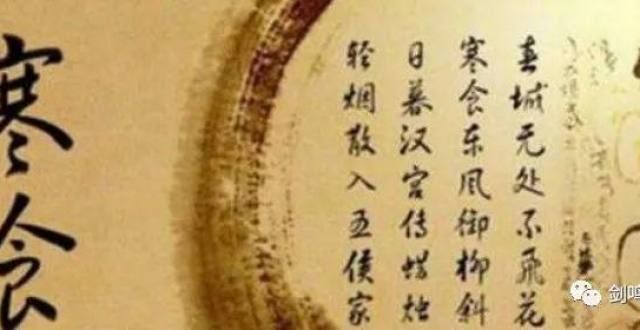 春城无处不飞花
寒食东风御柳斜
日暮汉宫传蜡烛
轻烟散入五侯家
寒食
剑鸣